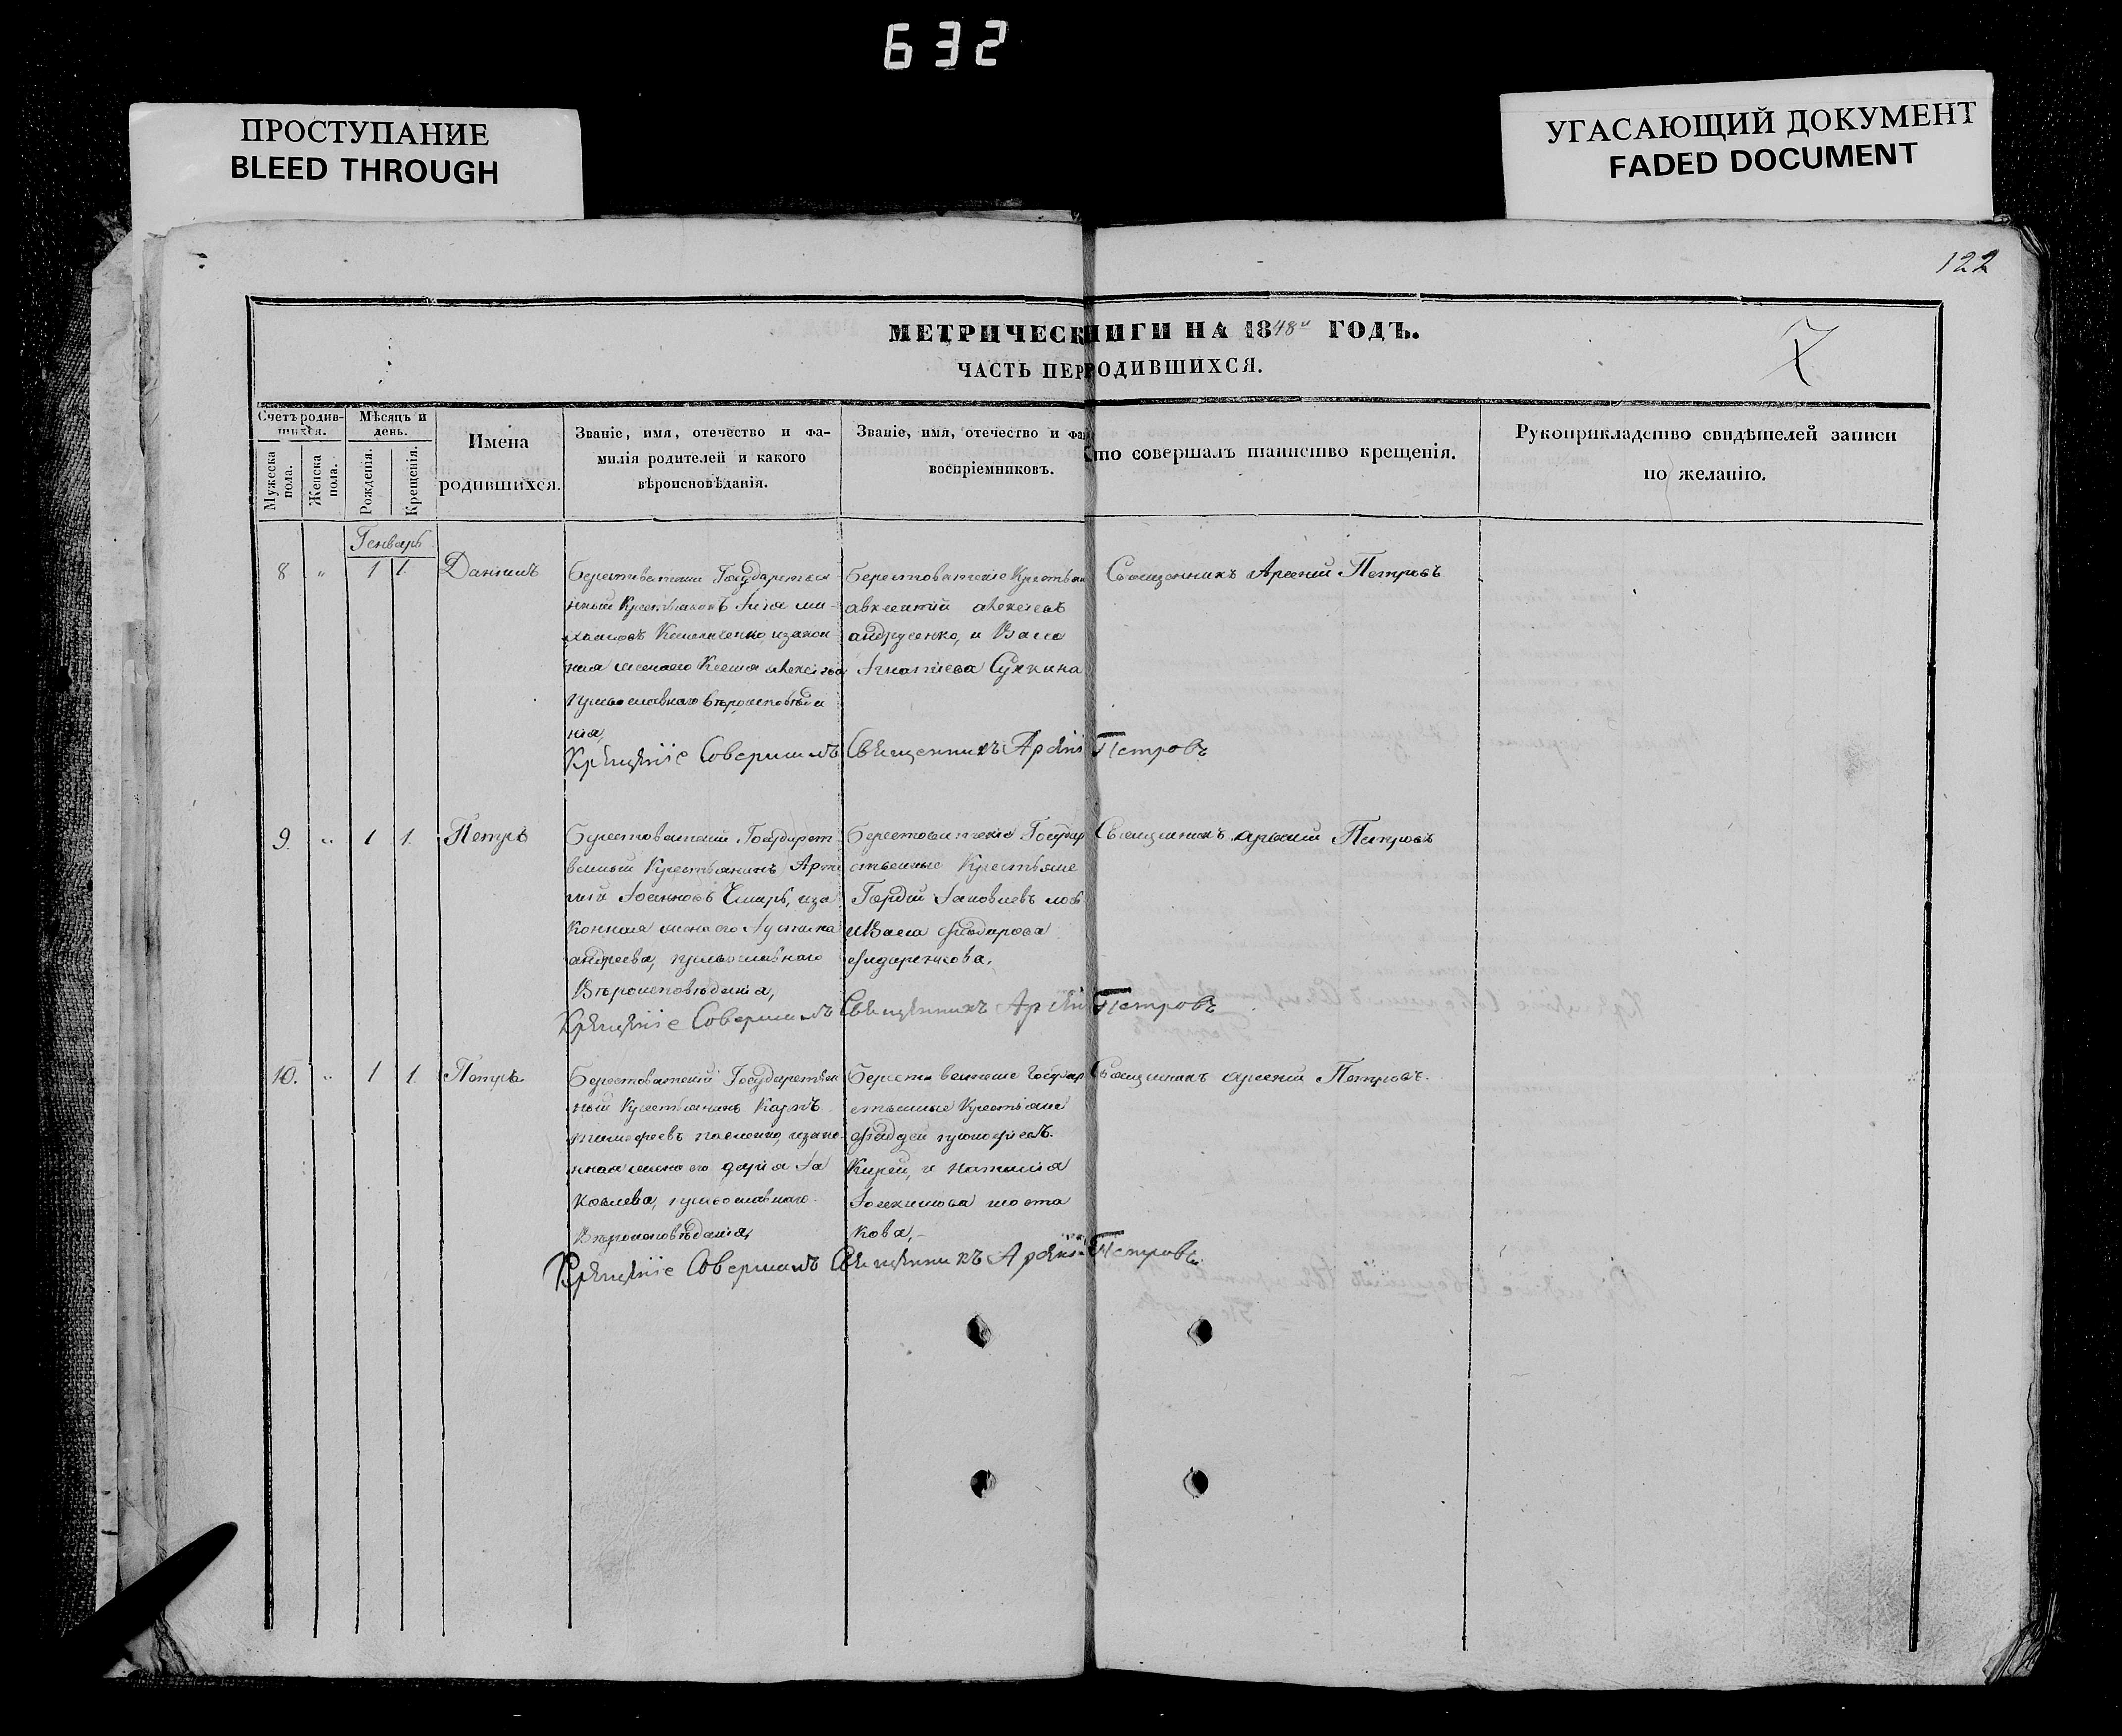 632
ПРОСТУПАНИЕ
BLEED THROUGH
УГАСАЮЩИЙ ДОКУМЕНТ
FADED DOCUMENT
122
МЕТРИЧЕСК НИГИ НА 1848й ГОДЪ.
7
ЧАСТЬ ПЕР РОДИВШИХСЯ.
Счетъ родив-
шихся.
Мужеска пола.
Женска пола.
Мѣсяцъ и
день.
Рожденія.
Крещенія.
Имена
родившихся.
Званіе, имя, отечество и фа-
милія родителей и какого
вѣроисповѣданія.
Званіе, имя, отечество и фа
воспріемниковъ.
то совершалъ таинство крещенія.
Рукоприкладство свидѣтелей записи
по желанію.
Генварь
8 „ 1 1. Даніилъ
Берестоватскій Государствен
ный Крестьянинъ ми-
хаиловъ закон
ная жена его Ксенія Алексѣева
православнаго вѣроисповѣда
нія,
Берестоватскіе Крестьян
Авксентій Алексѣевъ
Андрусенко, и Васса
Игнатіева
Священникъ Арсеній Петровъ
Крещеніе Совершилъ Священникъ Арсеній Петровъ
9. „ 1 1. Петръ
Берестоватскій Государст
венный Крестьянинъ Арте
мій Іоанновъ иза
конная жена его Іустина
Андреева, православнаго
Вѣроисповѣданія,
Берестоватскіе Государ
ственные Крестьяне
Гордій Іаковлевъ
и Васса Ѳеодорова
Священникъ Арсеній Петровъ
Крещеніе Совершилъ Священникъ Арсеній Петровъ
10. „ 1 1. Петръ
Берестоватскій Государствен
ный Крестьянинъ Карпъ
Тимофеевъ изако
нная жена его Дарія Іа
ковлева, православнаго
Вѣроисповѣданія,
Берестоватскіе Государ
ственные Крестьяне
Фаддей
Кирей, и Наталія
Іоакимова шоста
кова,
Священникъ Арсеній Петровъ.
Крещеніе Совершилъ Священникъ Арсеній Петровъ